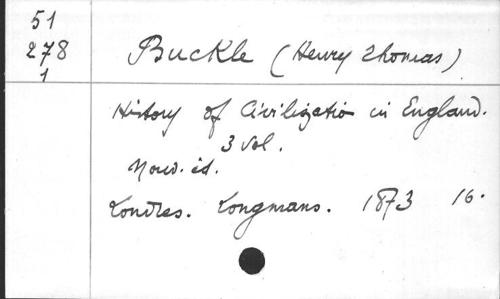 51
278
1
Buckle (Henry Thomas)
History of Civilization in England.
3 vol.
Nouv. éd.
Londres. Longmans. 1873 16.